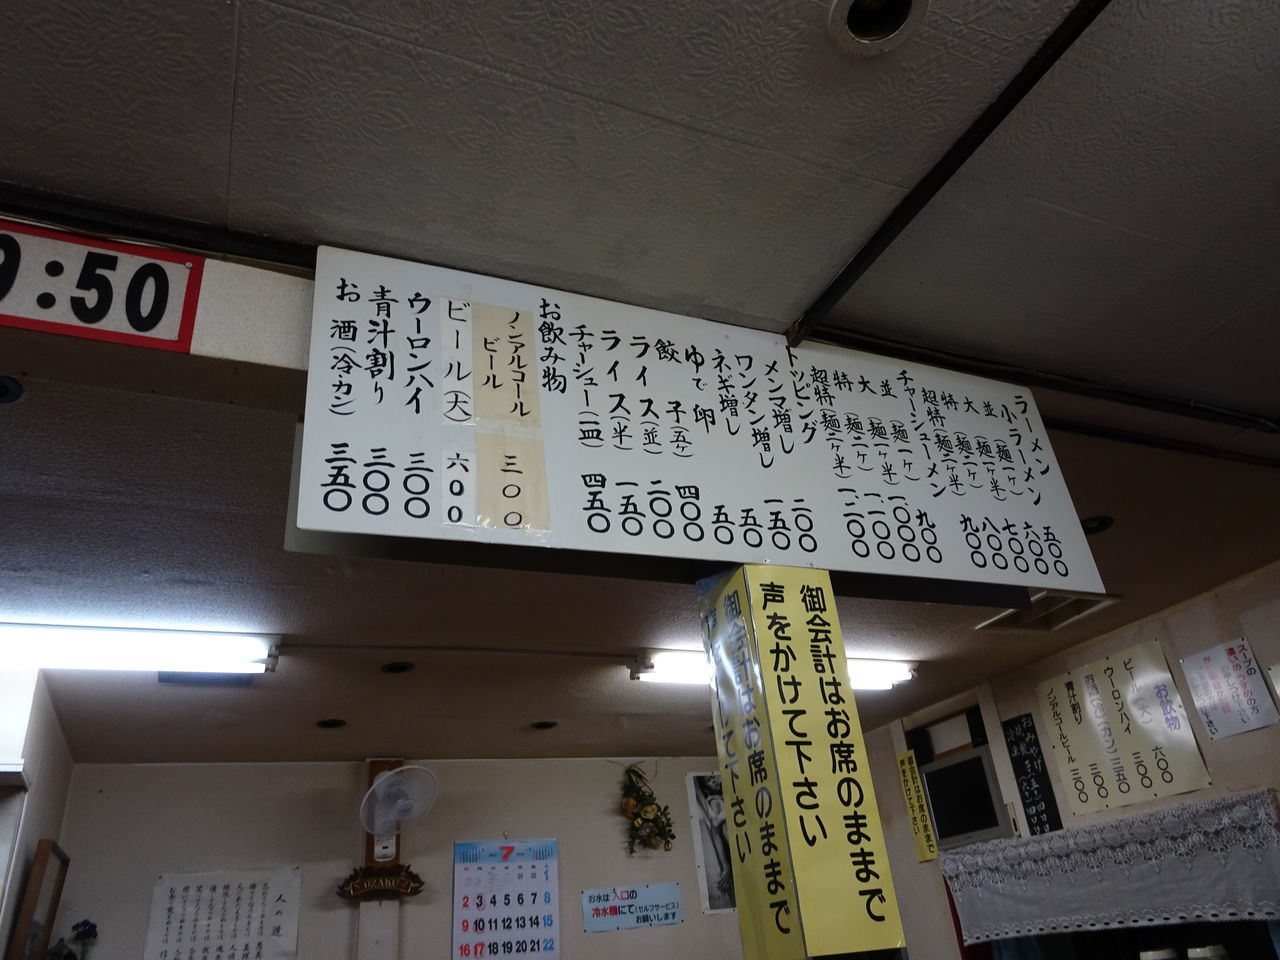 ラーメン
小ラーメン 五〇〇
並(麺一ヶ) 六〇〇
大(麺一ヶ半) 七〇〇
特(麺二ヶ) 八〇〇
超特(麺二ヶ半) 九〇〇
チャーシューメン
並(麺一ヶ) 九〇〇
大(麺一ヶ半) 一〇〇〇
特(麺二ヶ) 一一〇〇
超特(麺二ヶ半) 一二〇〇
トッピング
メンマ増し 二〇〇
ワンタン増し 一五〇
ネギ増し 五〇
ゆで卵 五〇
餃子(五ヶ) 四〇〇
ライス(並) 二〇〇
ライス(半) 一五〇
チャーシュー(一皿) 四五〇
お飲み物
ノンアルコール
ビール 三〇〇
ビール(大) 六〇〇
ウーロンハイ 三〇〇
青汁割り 三〇〇
お酒(冷・カン) 三五〇
9:50
御会計はお席のままで
声をかけて下さい
御会計はお席のままで
御会計はお席のままで
声をかけて下さい
お飲物
ビール(大) 六〇〇
ウーロンハイ 三〇〇
お酒(冷)(カン) 三五〇
青汁割り 三〇〇
ノンアルコールビール 三〇〇
スープの
おみやげ
OZAKU
7
1
2 3 4 5 6 7 8
9 10 11 12 13 14 15
16 17 18 19 20 21 22
お水は入口の
冷水機にて(セルフサービス)
お願いします
人の道